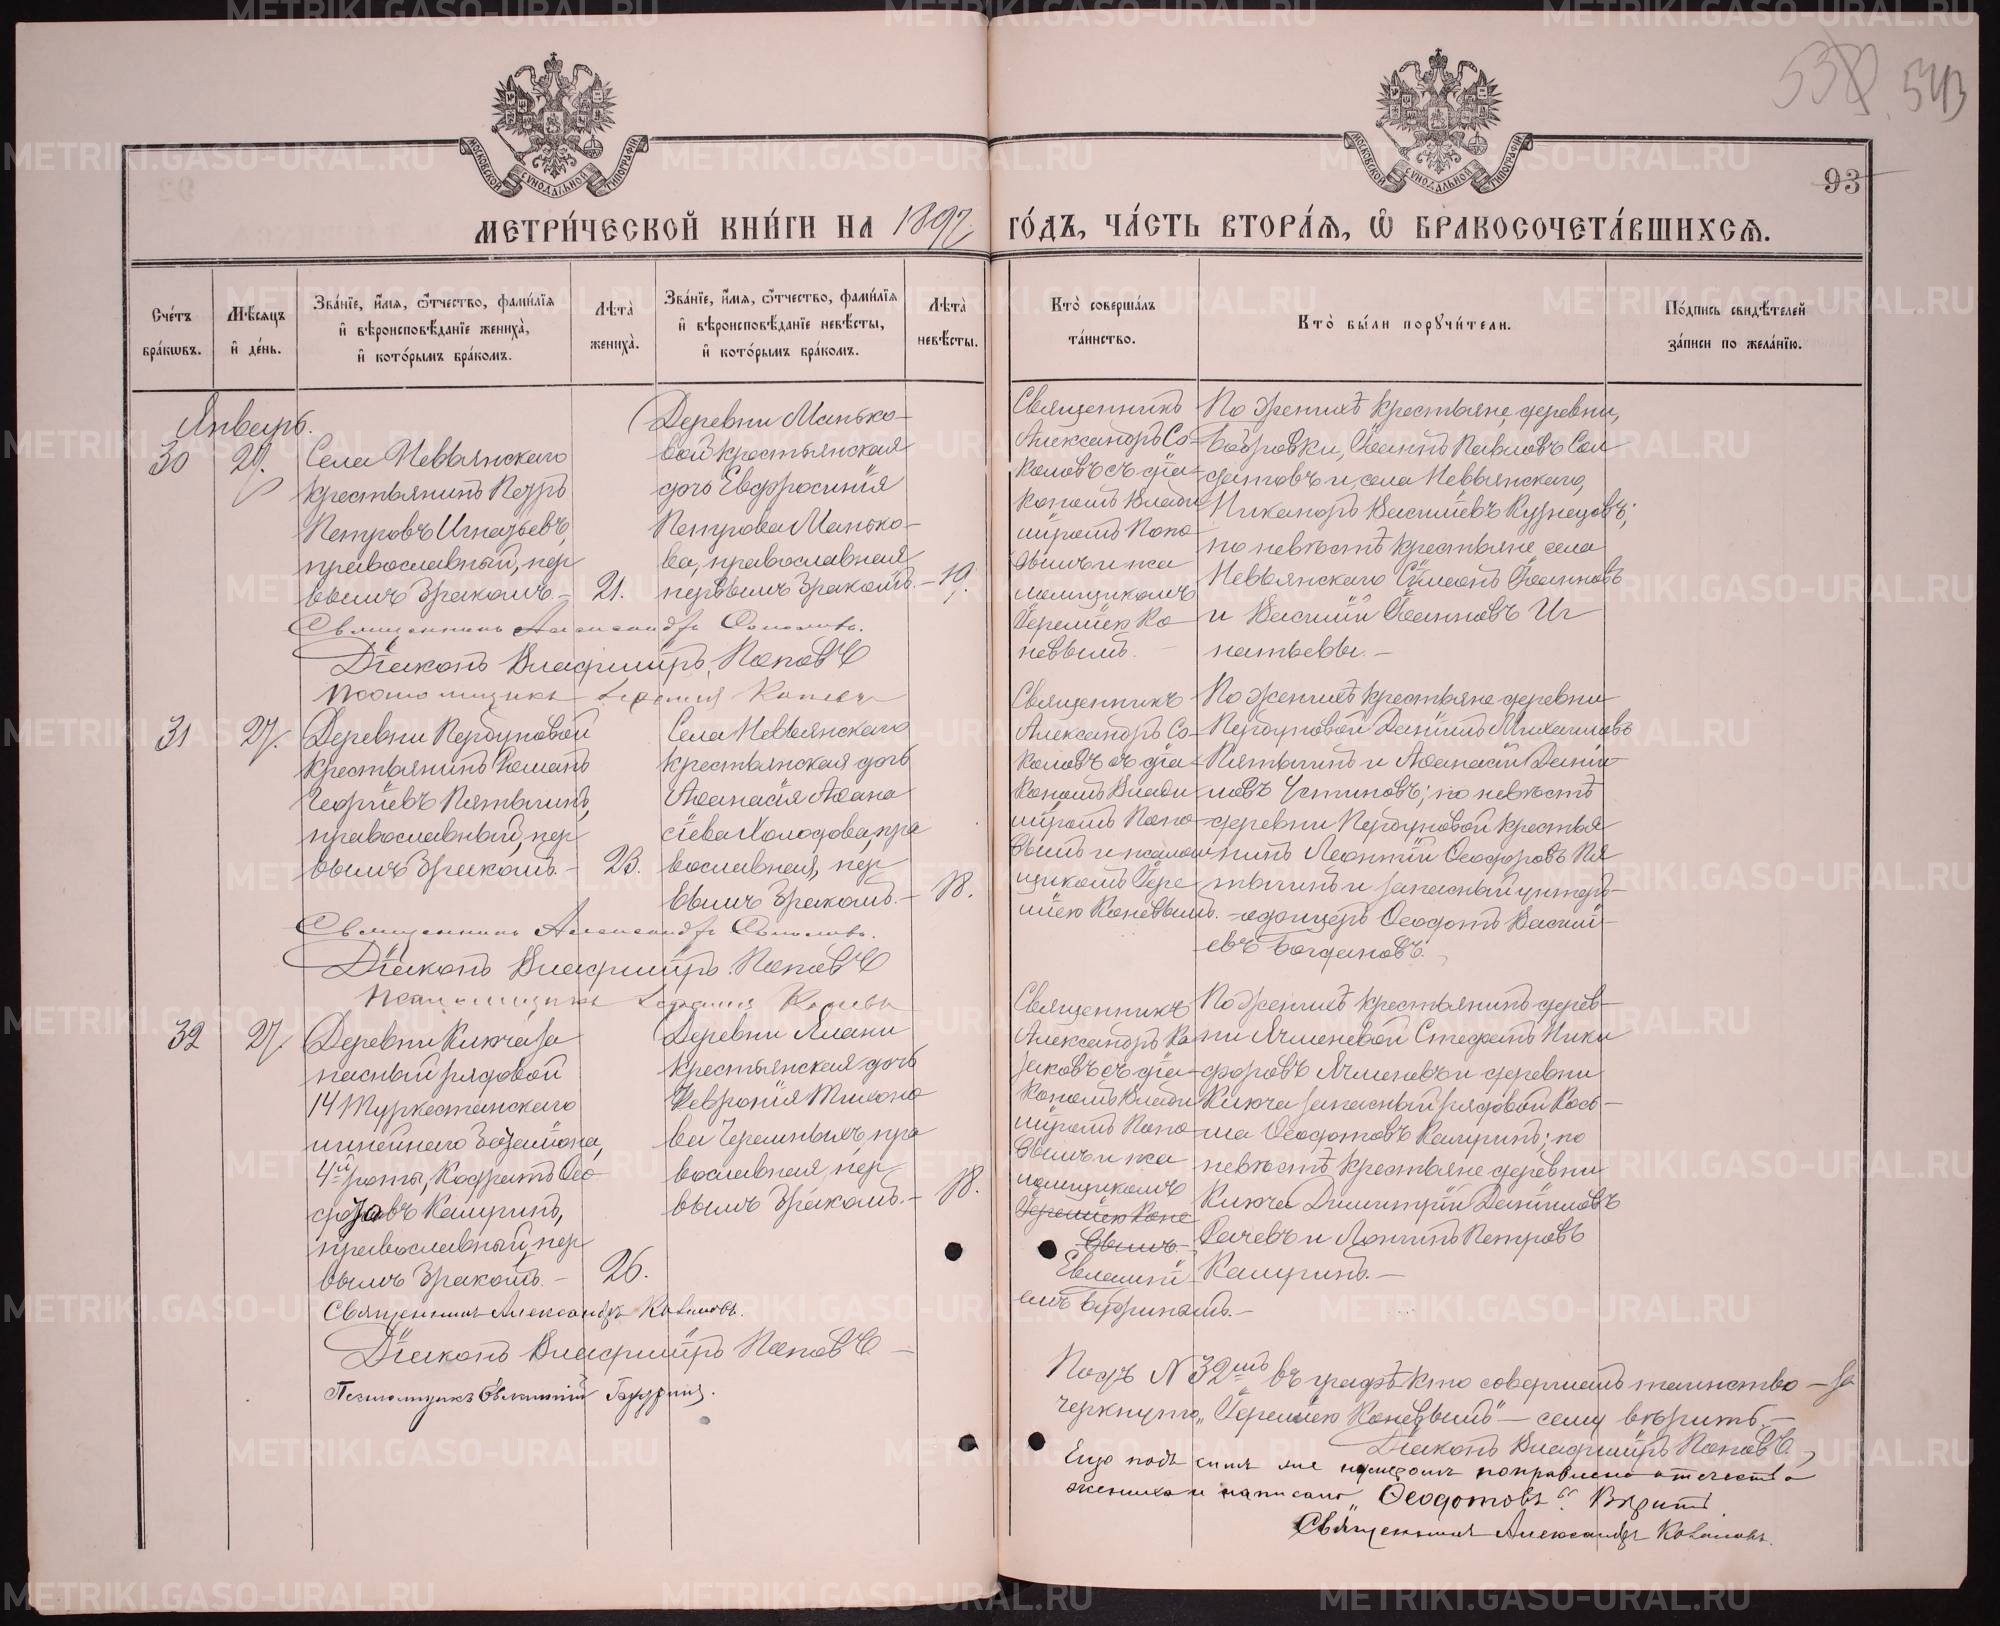 538. 543
МОСКОВСКОЙ СѴНОДАЛЬНОЙ ТИПОГРАФІИ
МОСКОВСКОЙ СѴНОДАЛЬНОЙ ТИПОГРАФІИ
93
МЕТРИ́ЧЕСКОЙ КНИ́ГИ НА 1897
ГО́ДЪ, ЧА́СТЬ ВТОРА́Я, Ѽ БРАКОСОЧЕТА́ВШИХСѦ.
Сче́тъ бра́кѡвъ.
Мѣ́сяцъ и҆ де́нь.
Зва́нїе, и҆́мѧ, ѻ҆́тчество, фами́лїѧ и҆ вѣроисповѣ́данїе жениха̀, и҆ кото́рымъ бра́комъ.
Лѣта̀ жениха̀.
Зва́нїе, и҆́мѧ, ѻ҆́тчество, фами́лїѧ и҆ вѣроисповѣ́данїе невѣ́сты, и҆ кото́рымъ бра́комъ.
Лѣта̀ невѣ́сты.
Кто̀ соверша́лъ та́инство.
Кто̀ бы́ли порꙋчи́тели.
По́дпись свидѣ́телей за́писи по жела́нїю.
Январь.
30
27.
Села Невьянскаго
крестьянинъ Петръ
Петровъ Игнатьевъ,
православный, пер
вымъ бракомъ. –
21.
Деревни Манько-
вой крестьянская
дочь Евфросинія
Петрова Манько-
ва, православная
первымъ бракомъ. –
19.
Священникъ
Александръ Со-
коловъ съ діа-
кономъ Влади
міромъ Попо
вымъ и пса
ломщикомъ
Іереміею Ко
невымъ. –
По женихѣ крестьяне, деревни,
Бобровки, Іоаннъ Павловъ Сол
датовъ и, села Невьянскаго,
Никандръ Васильевъ Кузнецовъ;
по невѣстѣ крестьяне села
Невьянскаго Сѵмеонъ Іоанновъ
и Василій Іоанновъ Иг
натьевы. –
Священникъ Александръ Соколовъ.
Діаконъ Владиміръ Поповъ
Псаломщикъ Іеремія Коневъ
31
27.
Деревни Первуновой
крестьянинъ Романъ
Георгіевъ Пятыгинъ,
православный, пер
вымъ бракомъ. –
23.
Села Невьянскаго
крестьянская дочь
Аѳанасія Аѳана
сіева Холодова, пра
вославная, пер
вымъ бракомъ. –
18.
Священникъ
Александръ Со-
коловъ съ діа-
кономъ Влади
міромъ Попо-
вымъ и псалом
щикомъ Іере
міею Коневымъ.
По женихѣ крестьяне деревни
Первуновой Даніилъ Михаиловъ
Пятыгинъ и Аѳанасій Даніи
ловъ Устиновъ; по невѣстѣ
деревни Первуновой крестья
нинъ Леонтій Ѳеодоровъ Пя
тыгинъ и запасный унтеръ-
-офицеръ Ѳеодотъ Василі-
евъ Богдановъ.
Священникъ Александръ Соколовъ.
Діаконъ Владиміръ Поповъ
Псаломщикъ Іеремія Коневъ
32
27.
Деревни Ключа за
пасный рядовой
14 Туркестанскаго
линейнаго баталіона,
4й роты, Кодратъ Ѳео
дотовъ Калугинъ,
православный, пер
вымъ бракомъ. –
26.
Деревни Ялани
крестьянская дочь
Февронія Тихоно
ва Черемныхъ, пра
вославная, пер
вымъ бракомъ. –
18.
Священникъ
Александръ Ка
заковъ съ діа-
кономъ Влади
міромъ Попо
вымъ и пса
ломщикомъ
Іереміею Коне
вымъ.
Евлампі
емъ
По женихѣ крестьянинъ дерев-
ни Ячменевой Стефанъ Ники
форовъ Ячменевъ и деревни
Ключа запасный рядовой Кось-
ма Ѳеодотовъ Калугинъ; по
невѣстѣ крестьяне деревни
Ключа Димитрій Даніиловъ
Рачевъ и Логгинъ Петровъ
Калугинъ. –
Священникъ Александръ Казаковъ.
Діаконъ Владиміръ Поповъ –
Псаломщикъ Евлампій
Подъ N 32мъ въ графѣ кто совершалъ таинство – за
черкнуто „Іереміею Коневымъ" – сему вѣрить. –
Діаконъ Владиміръ Поповъ,
Еще подъ симъ же номеромъ поправлено отечество
жениха и написано „Ѳеодотовъ". Вѣрить
Священникъ Александръ Казаковъ.
METRIKI.GASO-URAL.RU